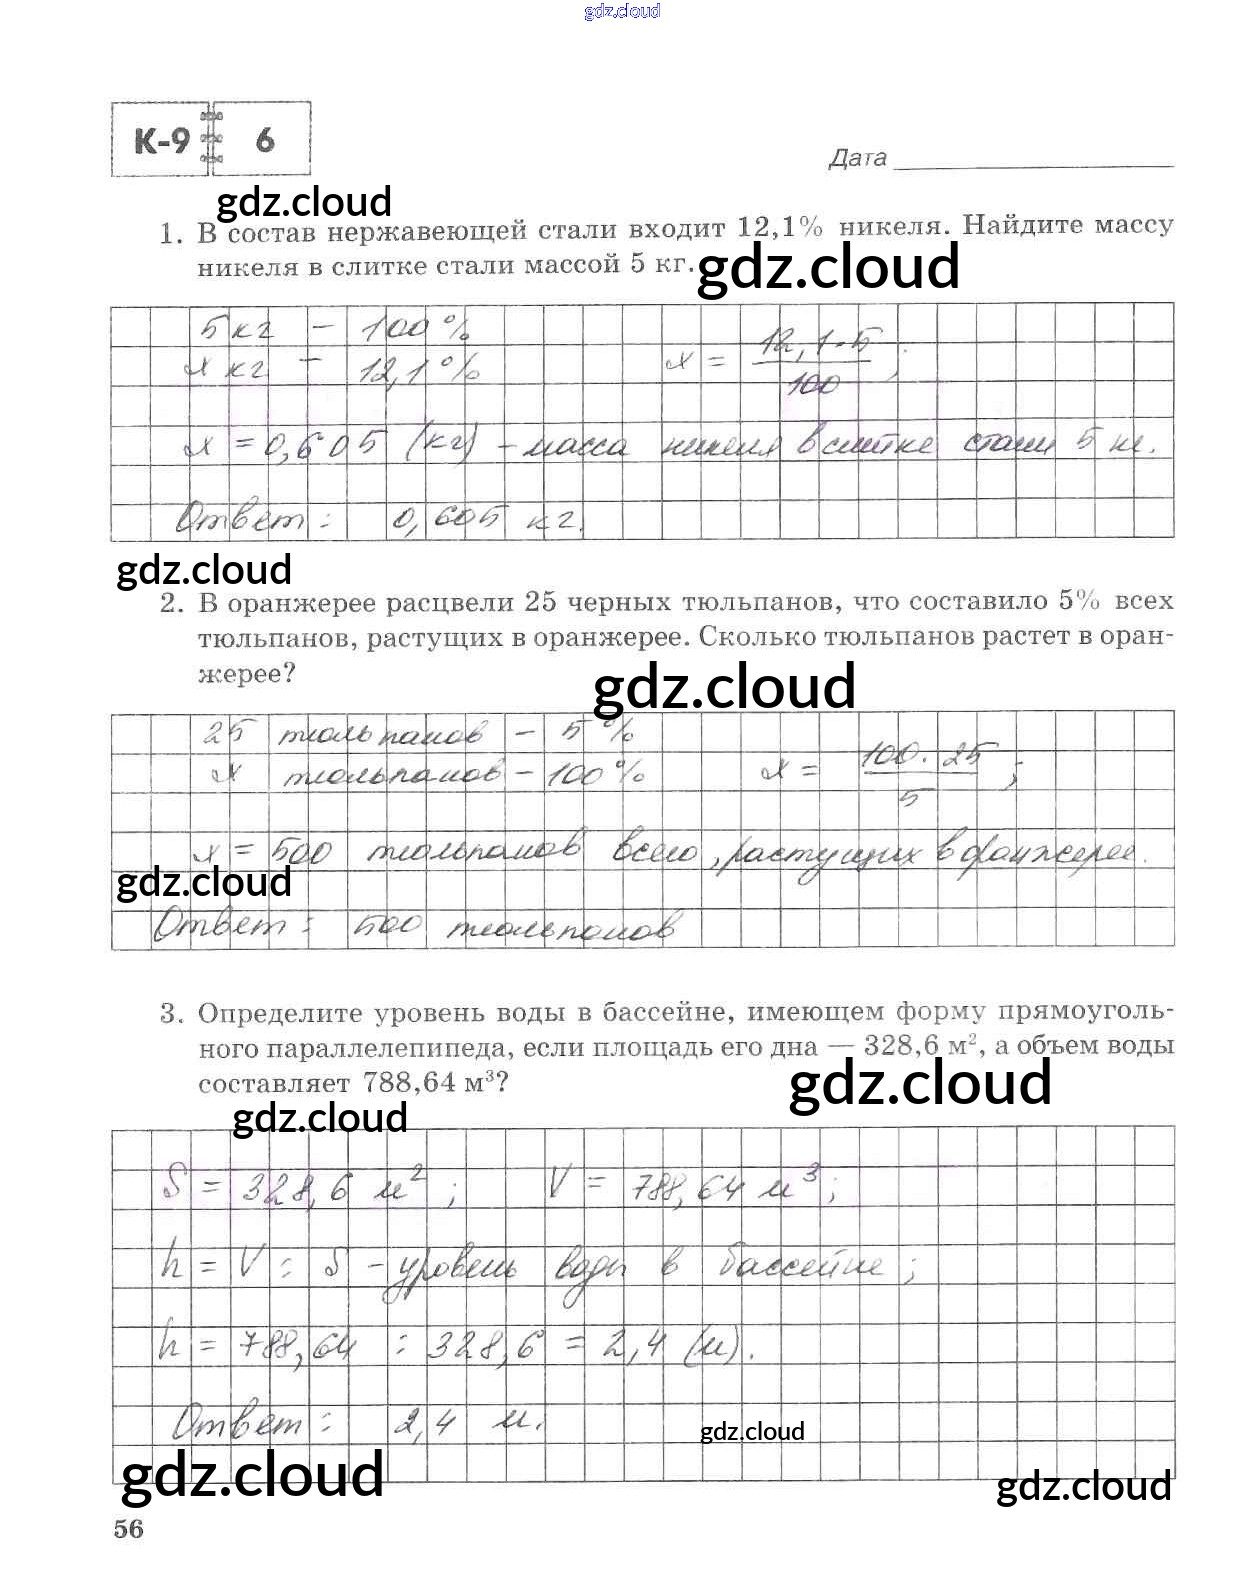 gdz.cloud
К-9 6
Дата
gdz.cloud
1. В состав нержавеющей стали входит 12,1% никеля. Найдите массу
никеля в слитке стали массой 5 кг.
gdz.cloud
5 кг – 100%
x кг – 12,1%
x = 12,1·5 / 100 ;
x = 0,605 (кг) – масса никеля в слитке стали 5 кг.
Ответ: 0,605 кг.
gdz.cloud
2. В оранжерее расцвели 25 черных тюльпанов, что составило 5% всех
тюльпанов, растущих в оранжерее. Сколько тюльпанов растет в оран-
жерее?
gdz.cloud
25 тюльпанов – 5%
x тюльпанов – 100%
x = 100·25 / 5 ;
x = 500 тюльпанов всего, растущих в оранжерее.
gdz.cloud
Ответ: 500 тюльпанов
3. Определите уровень воды в бассейне, имеющем форму прямоуголь-
ного параллелепипеда, если площадь его дна — 328,6 м², а объем воды
составляет 788,64 м³?
gdz.cloud
gdz.cloud
S = 328,6 м² ; V = 788,64 м³ ;
h = V : S – уровень воды в бассейне ;
h = 788,64 : 328,6 = 2,4 (м).
Ответ: 2,4 м.
gdz.cloud
gdz.cloud
gdz.cloud
56